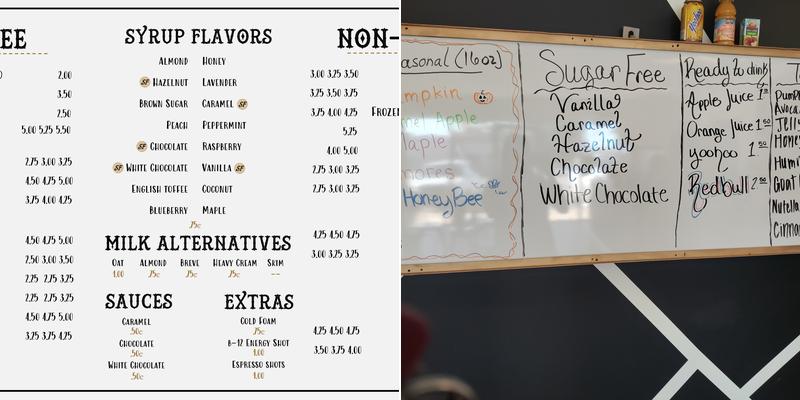 EE
SYRUP FLAVORS
NON-
ALMOND HONEY
SF HAZELNUT LAVENDER
BROWN SUGAR CARAMEL SF
PEACH PEPPERMINT
SF CHOCOLATE RASPBERRY
SF WHITE CHOCOLATE VANILLA SF
ENGLISH TOFFEE COCONUT
BLUEBERRY MAPLE
.75¢
2.00
3.50
2.50
5.00 5.25 5.50
2.75 3.00 3.25
4.50 4.75 5.00
3.75 4.00 4.25
4.50 4.75 5.00
2.50 3.00 3.50
2.25 2.75 3.25
2.25 2.75 3.25
4.50 4.75 5.00
3.25 3.75 4.25
MILK ALTERNATIVES
OAT ALMOND BREVE HEAVY CREAM SKIM
1.00 .75¢ .75¢ .75¢ --
SAUCES
CARAMEL
.50¢
CHOCOLATE
.50¢
WHITE CHOCOLATE
.50¢
EXTRAS
COLD FOAM
.75¢
B-12 ENERGY SHOT
1.00
ESPRESSO SHOTS
1.00
3.00 3.25 3.50
3.25 3.50 3.75
3.75 4.00 4.25
FROZE
5.25
4.00 5.00
2.75 3.00 3.25
2.75 3.00 3.25
4.25 4.50 4.75
3.00 3.25 3.50
4.25 4.50 4.75
3.50 3.75 4.00
asonal (16oz)
mpkin
mel Apple
laple
mores
HoneyBee
Sugar Free
Vanilla
Caramel
Hazelnut
Chocolate
White Chocolate
Ready to drink
Apple Juice 1.50
Orange Juice 1.50
yoohoo 1.50
Redbull 2.50
T
Pump
Avoca
Jelly
Honey
Hum
Goat
Nutella
Cinna